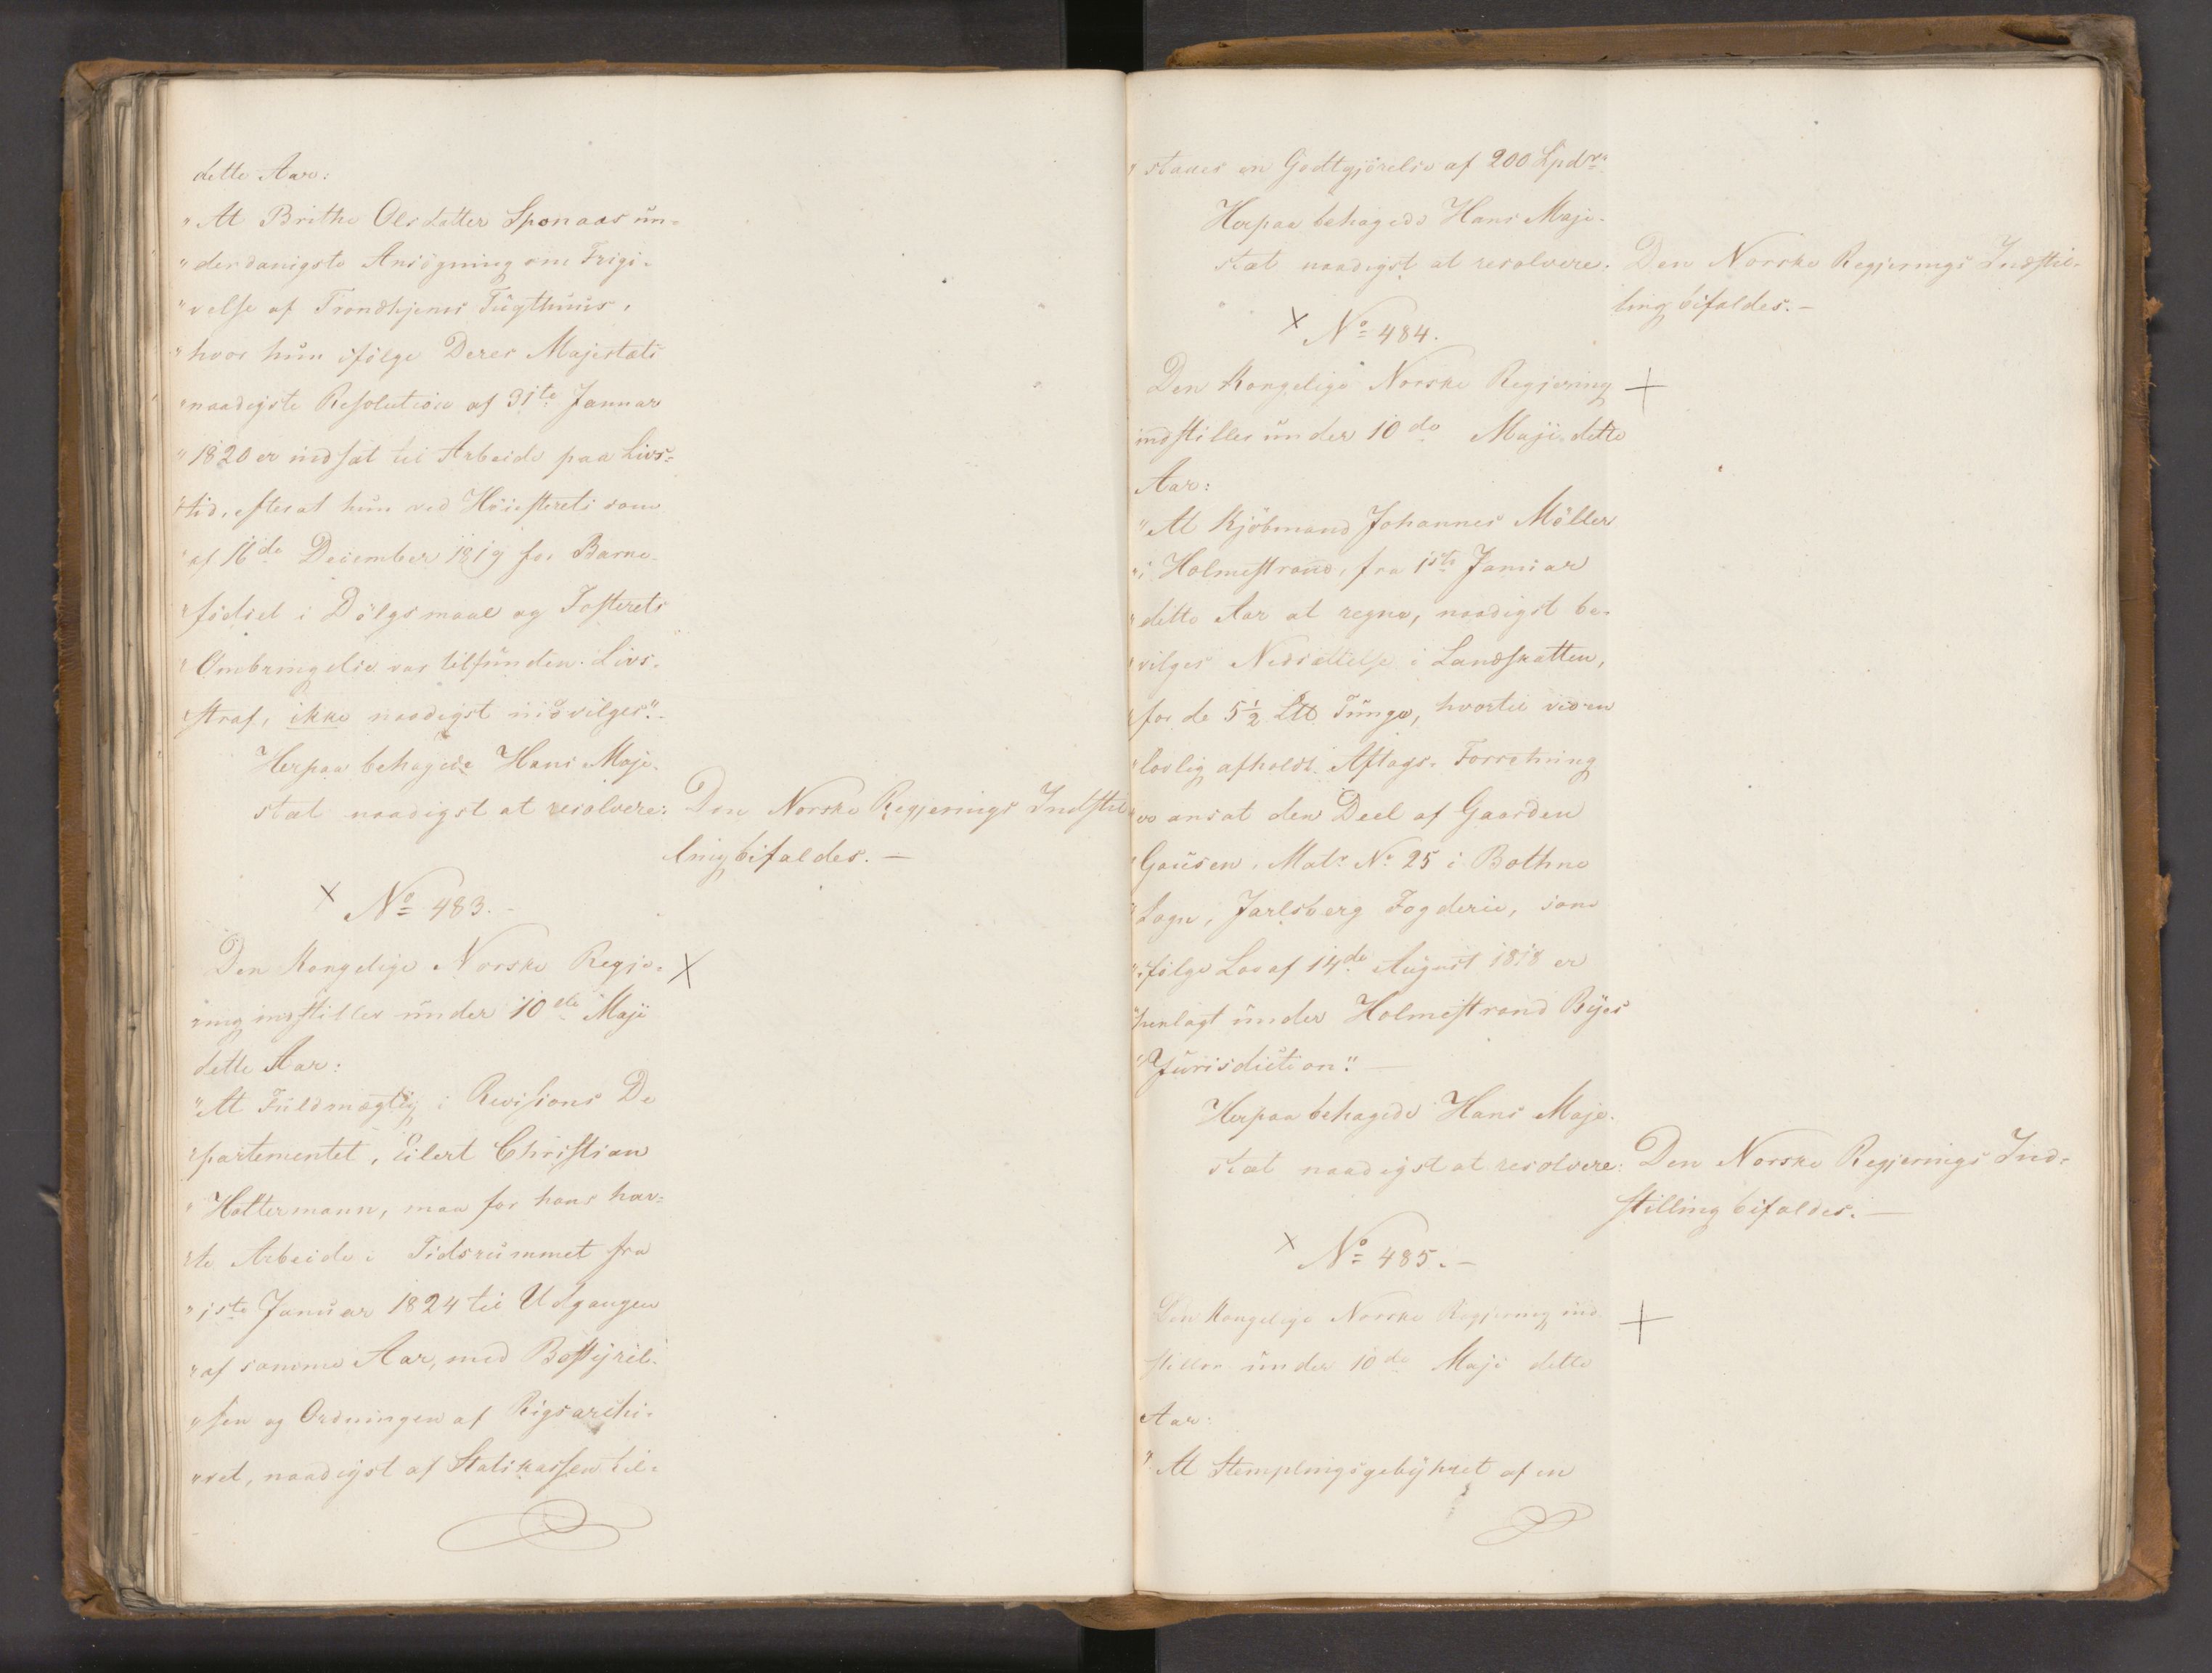 dette Aar:
"At Brithe Olsdatter Sponaas ün-
"derdanigste Ansögning om Frigi-
"velse af Trondhjems Tügthüüs,
"hvor hün ifölge Deres Majestæts
"naadigste Resolution af 31te Januar
"1820 er indsat til Arbeide paa Livs-
"tid, efterat hün ved Höiesterets Dom
"af 16de December 1819 for Barne-
"födsel i Dölgsmaal og Fosterets
"Ombringelse var tilfünden Livs-
"straf, ikke naadigst indvilges".
Herpaa behagede Hans Maje-
stæt naadigst at resolvere: Den Norske Regjerings Indstil-
ling bifaldes. —
× No 483. -
Den Kongelige Norske Regje- ×
ring indstiller ünder 10de Maji
dette Aar:
"At Füldmægtig i Revisions De
"partementet, Eilert Christian
"Holtermann, maa for hans hav-
"te Arbeide i Tidsrümmet fra
"1ste Janüar 1824 til Udgangen
"af samme Aar, med Bestyrel-
"sen og Ordningen af Rigsarchi-
"vet, naadigst af Statskassen til-
"staaes en Godtgjörelse af 200 Spdr.
Herpaa behagede Hans Maje-
stæt naadigst at resolvere: Den Norske Regjerings Indstil-
ling bifaldes. —
× No 484.
Den Kongelige Norske Regjering ×
indstiller ünder 10de Maji dette
Aar:
"At Kjöbmand Johannes Möller
"i Holmestrand, fra 1ste Janüar
"dette Aar at regne, naadigst be-
"vilges Nedsættelse i Landskatten,
"for de 5½ Tünge, hvortil ved en
"lovlig afholdt Aftags-Forretning
"er ansat den Deel af Gaarden
"Gaüsen, Matr No 25 i Bothne
"Sogn, Jarlsberg Fogderie, som
"ifölge Lov af 14de August 1818 er
"henlagt ünder Holmestrand Byes
"Jürisdiction". —
Herpaa behagede Hans Maje-
stæt naadigst at resolvere: Den Norske Regjerings Ind-
stilling bifaldes. —
× No 485. -
Den Kongelige Norske Regjering ind ×
stiller ünder 10de Maji dette
Aar:
"At Stemplingsgebyhret af en